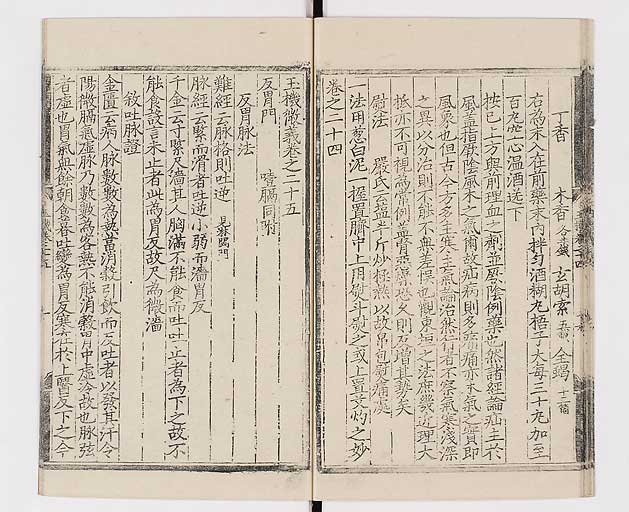 丁香 木香 各半錢 玄胡索 五錢 全蝎 十二箇
右為末入在前藥末內拌勻酒糊丸梧子大每三十丸加至
百丸空心温酒送下
按已上方與前理血之劑並厥陰例藥也然諸經論疝主於
風蓋指厥陰風木之氣爾故疝病則多 痛亦木氣之實即
風象也但古今方多主寒主氣論治然行者不察氣寒淺深
之異以分治則不能不無差悞也觀東垣之法庶幾近理大
抵亦不可視為常例
尉法 嚴氏云鹽半斤炒極熱以故帛包熨痛處
一法用葱白泥一握置臍中上用熨斗熨之或上置艾灼之妙
卷之二十四
玉機微義卷之二十五
反胃門 噎膈同附
反胃脉法
難經云脉格則吐逆 見噎膈門
脉經云緊而滑者吐逆小弱而濇胃反
千金云寸緊尺濇其人胸滿不能食而吐吐止者為下之故不
能食設言未止者此為胃反故尺為微濇
敘吐脉證
金匱云病人脉數數為熱當消穀引飲而反吐者以發其汗令
陽微膈氣虛脉乃數數為客熱不能消穀胃中虛冷故也脉弦
者虛也胃氣無餘朝食暮吐變為胃反寒在於上醫反下之今